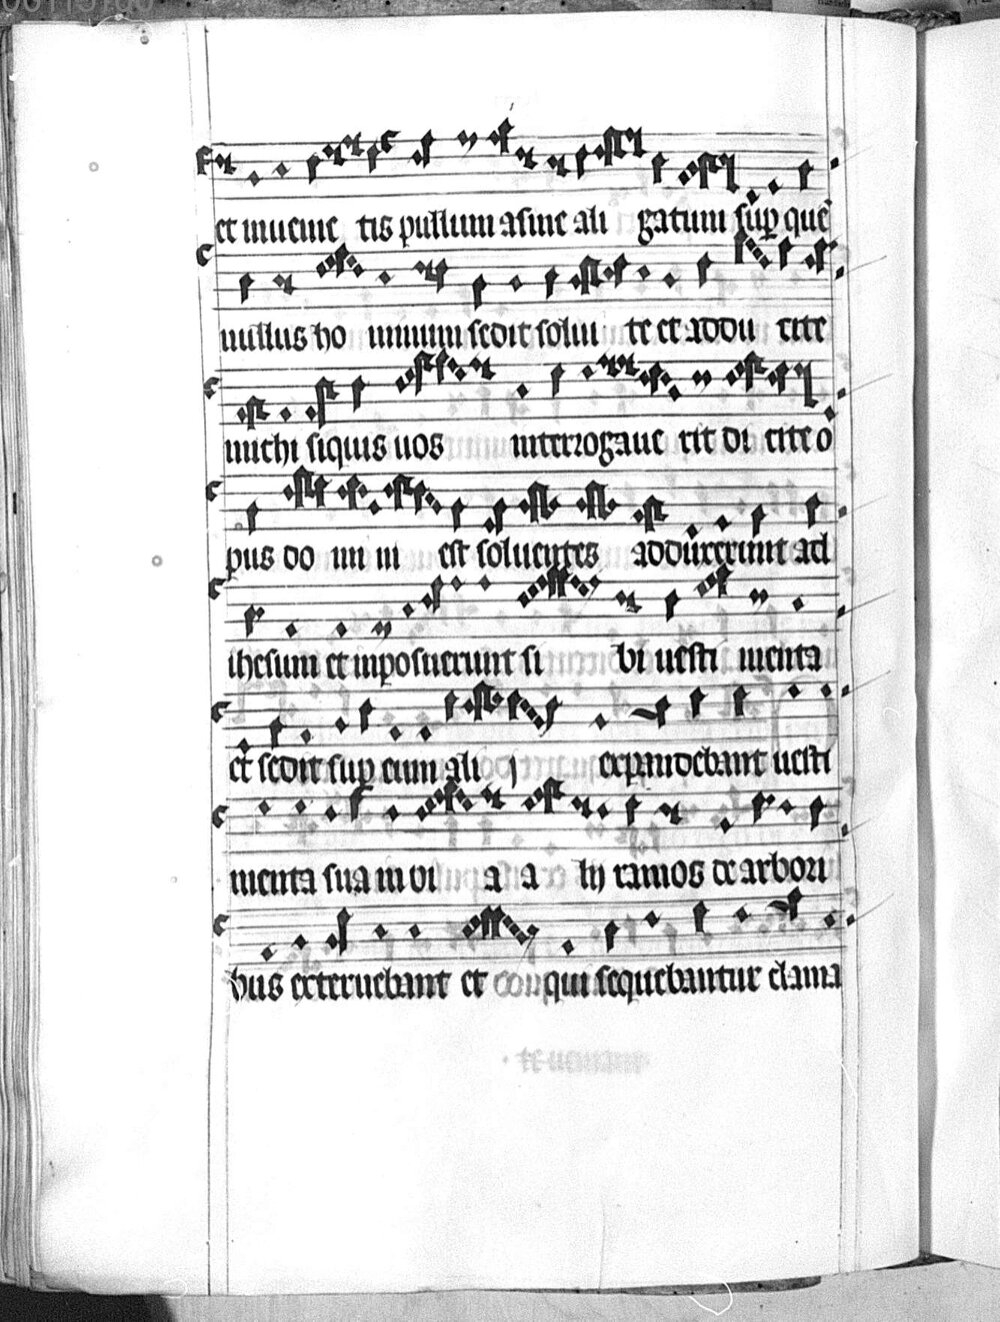 et inuenie tis pullum asine ali gatum sup̱ quē
nullus ho minum sedit solui te et addu cite
michi siquis uos interrogaue rit di cite o
pus do mi ni est soluentes adduxerunt ad
ihesum et inposuerunt si bi uesti menta
et sedit sup̱ eum ali j exp̱andebant uesti
menta sua in ui a a lij ramos de arbori
bus externebant et qui sequebantur clama